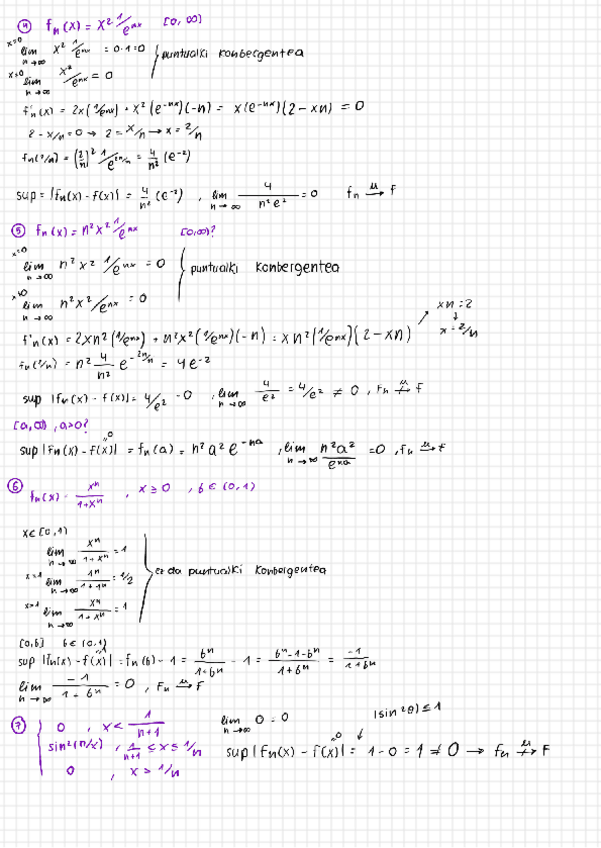 ④ fₙ(x) = x² 1/eⁿˣ [0, ∞)
x=0 lim n→∞ x² 1/eⁿˣ = 0·1=0
x>0 lim n→∞ x²/eⁿˣ = 0
} puntualki konbergentea
f'ₙ(x) = 2x(1/eⁿˣ) + x²(e⁻ⁿˣ)(-n) = x(e⁻ⁿˣ)(2-xn) = 0
2-x/n=0 → 2=x/n → x=2/n
fₙ(2/n) = (2/n)² 1/e²ⁿ/ⁿ = 4/n² (e⁻²)
sup = |fₙ(x) - f(x)| = 4/n² (e⁻²) , lim n→∞ 4/n²e² = 0 fₙ →ᵘ f
⑤ fₙ(x) = n²x² 1/eⁿˣ [0,∞)?
x=0 lim n→∞ n²x² 1/eⁿˣ = 0
x>0 lim n→∞ n²x²/eⁿˣ = 0
} puntualki konbergentea
f'ₙ(x) = 2xn²(1/eⁿˣ) + n²x²(1/eⁿˣ)(-n) = xn²(1/eⁿˣ)(2-xn) ↗ xn=2 ↓ x=2/n
fₙ(2/n) = n² 4/n² e⁻²ⁿ/ⁿ = 4e⁻²
sup |fₙ(x) - f(x)| = 4/e² - 0 , lim n→∞ 4/e² = 4/e² ≠ 0 , fₙ ↛ᵘ f
[a,∞) , a>0?
sup |fₙ(x) - f(x)| = fₙ(a) = n²a²e⁻ⁿᵃ , lim n→∞ n²a²/eⁿᵃ = 0 , fₙ →ᵘ f
⑥ fₙ(x) = xⁿ/1+xⁿ , x ≥ 0 , b ∈ (0,1)
x∈[0,1)
lim n→∞ xⁿ/1+xⁿ = 1
x=1 lim n→∞ 1ⁿ/1+1ⁿ = 1/2
x>1 lim n→∞ xⁿ/1+xⁿ = 1
} ez da puntualki konbergentea
[0,b] b∈(0,1)
sup |fₙ(x) - f(x)| = fₙ(b) - 1 = bⁿ/1+bⁿ - 1 = bⁿ-1-bⁿ/1+bⁿ = -1/1+bⁿ
lim n→∞ -1/1+bⁿ = 0 , fₙ →ᵘ f
⑦ { 0 , x < 1/n+1
sin²(π/x) , 1/n+1 ≤ x ≤ 1/n
0 , x > 1/n
lim n→∞ 0 = 0 |sin²θ| ≤ 1
sup |fₙ(x) - f(x)| = 1-0 = 1 ≠ 0 → fₙ ↛ᵘ f